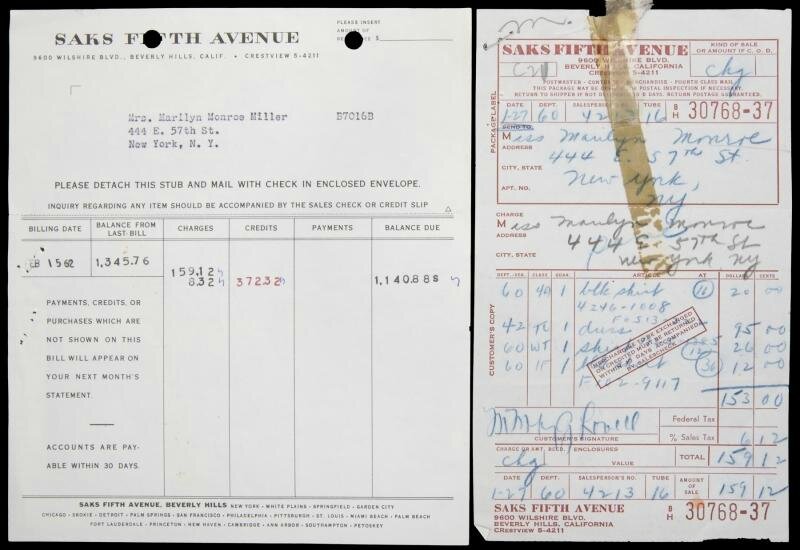 PLEASE INSERT
AMOUNT OF
$
SAKS FIFTH AVENUE
9600 WILSHIRE BLVD., BEVERLY HILLS, CALIF. • CRESTVIEW 5-4211
Mrs. Marilyn Monroe Miller B7016B
444 E. 57th St.
New York, N. Y.
PLEASE DETACH THIS STUB AND MAIL WITH CHECK IN ENCLOSED ENVELOPE.
INQUIRY REGARDING ANY ITEM SHOULD BE ACCOMPANIED BY THE SALES CHECK OR CREDIT SLIP
BILLING DATE BALANCE FROM LAST BILL CHARGES CREDITS PAYMENTS BALANCE DUE
FEB 15 62 1,345.76
159.12
8.32 372.32 1,140.88
PAYMENTS, CREDITS, OR
PURCHASES WHICH ARE
NOT SHOWN ON THIS
BILL WILL APPEAR ON
YOUR NEXT MONTH'S
STATEMENT.
ACCOUNTS ARE PAY-
ABLE WITHIN 30 DAYS.
SAKS FIFTH AVENUE, BEVERLY HILLS NEW YORK • WHITE PLAINS • SPRINGFIELD • GARDEN CITY
CHICAGO • SKOKIE • DETROIT • PALM SPRINGS • SAN FRANCISCO • PHILADELPHIA • PITTSBURGH • ST. LOUIS • MIAMI BEACH • PALM BEACH
FORT LAUDERDALE • PRINCETON • NEW HAVEN • CAMBRIDGE • ANN ARBOR • SOUTHAMPTON • PETOSKEY
SAKS FIFTH AVENUE
9600 WILSHIRE BLVD.
BEVERLY HILLS, CALIFORNIA
CRESTVIEW 5-4211
KIND OF SALE
OR AMOUNT IF C. O. D.
chg
POSTMASTER - CONTENTS MERCHANDISE - FOURTH CLASS MAIL
THIS PACKAGE MAY BE OPENED FOR POSTAL INSPECTION IF NECESSARY.
RETURN TO SHIPPER IF NOT DELIVERED IN DAYS. RETURN POSTAGE GUARANTEED.
PACKAGE LABEL
DATE DEPT. SALESPERSON'S NO. TUBE
1-27 60 4213 16 B/H 30768-37
SEND TO
Miss Marilyn Monroe
ADDRESS 444 E. 57th St.
CITY, STATE New York,
APT. NO. NY
CHARGE
Miss Marilyn Monroe
ADDRESS 444 E 57th St
CITY, STATE New York NY
CUSTOMER'S COPY
DEPT. CLASS QUAN. ARTICLE AT DOLLARS CENTS
60 1 blk skirt 16 20 00
4246-1008
42 1 dress 95 00
60 WT 1 26 00
60 1 12 00
-9117
MERCHANDISE TO BE EXCHANGED
OR CREDITED MUST BE RETURNED
WITHIN DAYS ACCOMPANIED
BY SALESCHECK
153 00
CUSTOMER'S SIGNATURE
Federal Tax
% Sales Tax 6 12
CHARGE OR AMT. RECD. ENCLOSURES
chg VALUE TOTAL 159 12
DATE DEPT. SALESPERSON'S NO. TUBE AMOUNT OF SALE
1-27 60 4213 16 159 12
SAKS FIFTH AVENUE
9600 WILSHIRE BLVD.
BEVERLY HILLS, CALIFORNIA
CRESTVIEW 5-4211
B/H 30768-37